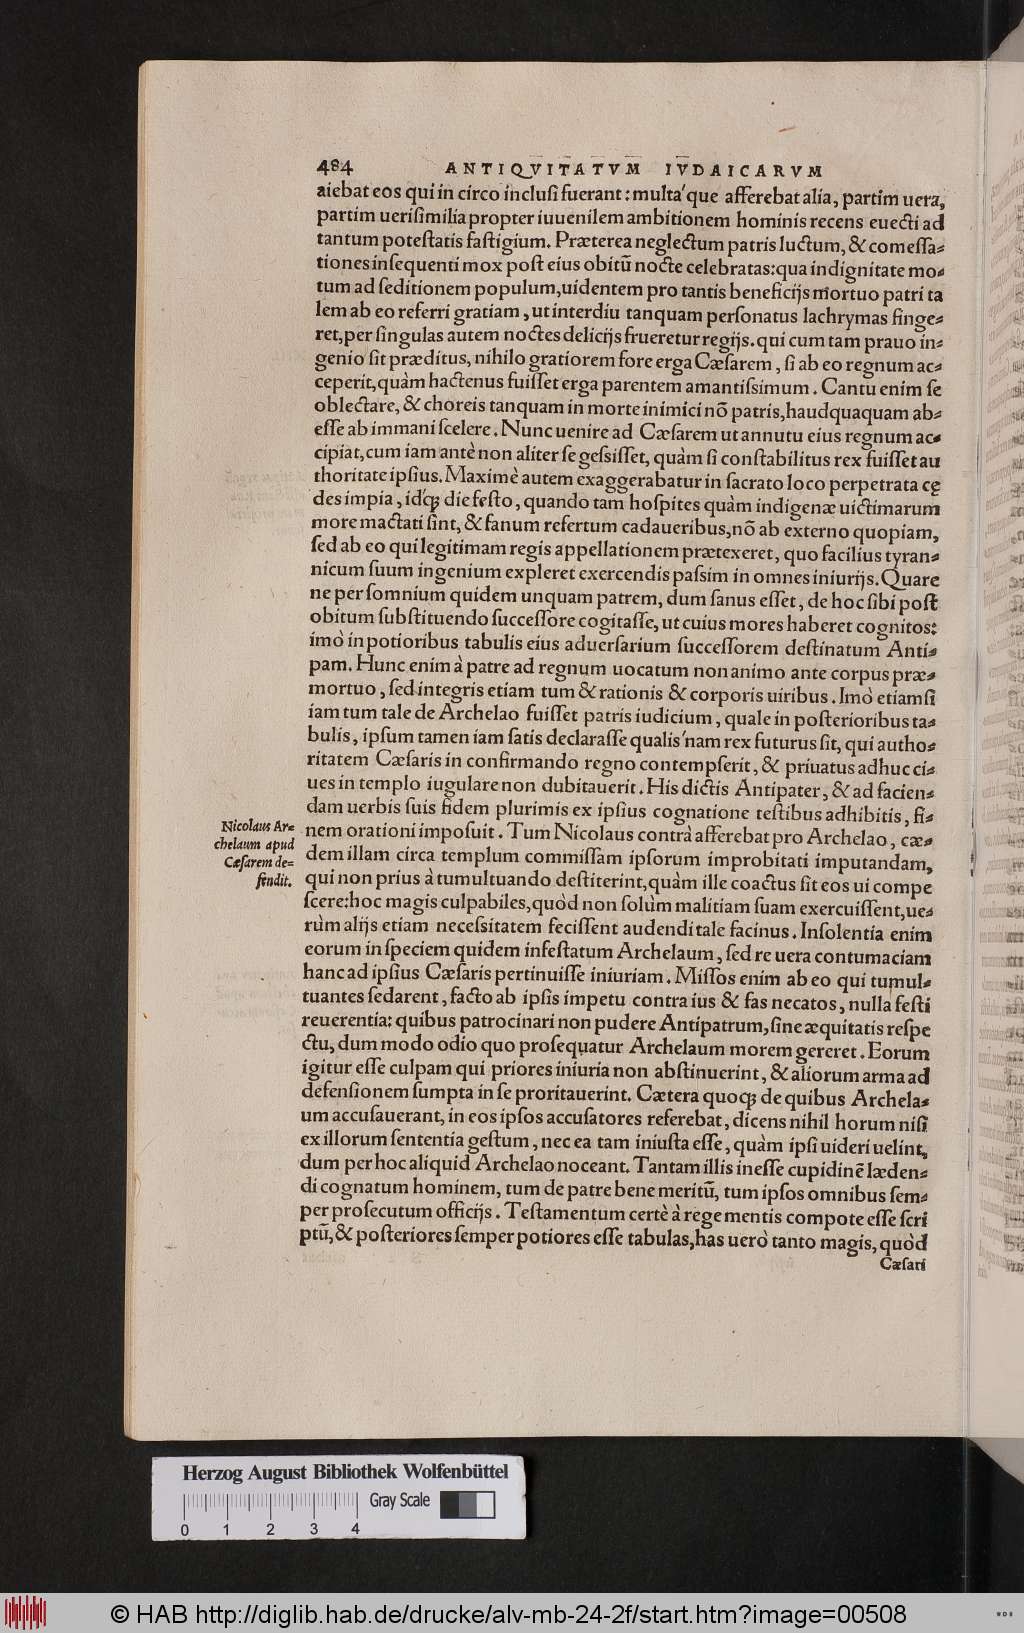 484 ANTIQVITATVM IVDAICARVM
aiebat eos qui in circo inclusi fuerant: multa'que afferebat alia, partim uera,
partim uerisimilia propter iuuenilem ambitionem hominis recens euecti ad
tantum potestatis fastigium. Præterea neglectum patris luctum, & comessa=
tiones insequenti mox post eius obitũ nocte celebratas: qua indignitate mo=
tum ad seditionem populum, uidentem pro tantis beneficijs mortuo patri ta
lem ab eo referri gratiam, ut interdiu tanquam personatus lachrymas finge=
ret, per singulas autem noctes delicijs frueretur regijs. qui cum tam prauo in=
genio sit præditus, nihilo gratiorem fore erga Cæsarem, si ab eo regnum ac=
ceperit, quàm hactenus fuisset erga parentem amantissimum. Cantu enim se
oblectare, & choreis tanquam in morte inimici nõ patris, haudquaquam ab=
esse ab immani scelere. Nunc uenire ad Cæsarem ut annutu eius regnum ac=
cipiat, cum iam antè non aliter se gessisset, quàm si constabilitus rex fuisset au
thoritate ipsius. Maximè autem exaggerabatur in sacrato loco perpetrata cę
des impia, idq́; die festo, quando tam hospites quàm indigenæ uictimarum
more mactati sint, & fanum refertum cadaueribus, nõ ab externo quopiam,
sed ab eo qui legitimam regis appellationem prætexeret, quo facilius tyran=
nicum suum ingenium expleret exercendis passim in omnes iniurijs. Quare
ne per somnium quidem unquam patrem, dum sanus esset, de hoc sibi post
obitum substituendo successore cogitasse, ut cuius mores haberet cognitos:
imò in potioribus tabulis eius aduersarium successorem destinatum Anti=
pam. Hunc enim à patre ad regnum uocatum non animo ante corpus præ=
mortuo, sed integris etiam tum & rationis & corporis uiribus. Imò etiamsi
iam tum tale de Archelao fuisset patris iudicium, quale in posterioribus ta=
bulis, ipsum tamen iam satis declarasse qualis'nam rex futurus sit, qui autho=
ritatem Cæsaris in confirmando regno contempserit, & priuatus adhuc ci=
ues in templo iugulare non dubitauerit. His dictis Antipater, & ad facien=
dam uerbis suis fidem plurimis ex ipsius cognatione testibus adhibitis, fi=
Nicolaus Ar=
chelaum apud
Cæsarem de=
fendit.
nem orationi imposuit. Tum Nicolaus contrà afferebat pro Archelao, cæ=
dem illam circa templum commissam ipsorum improbitati imputandam,
qui non prius à tumultuando destiterint, quàm ille coactus sit eos ui compe
scere: hoc magis culpabiles, quòd non solùm malitiam suam exercuissent, ue=
rùm alijs etiam necessitatem fecissent audendi tale facinus. Insolentia enim
eorum in speciem quidem infestatum Archelaum, sed re uera contumaciam
hanc ad ipsius Cæsaris pertinuisse iniuriam. Missos enim ab eo qui tumul=
tuantes sedarent, facto ab ipsis impetu contra ius & fas necatos, nulla festi
reuerentia: quibus patrocinari non pudere Antipatrum, sine æquitatis respe
ctu, dum modo odio quo prosequatur Archelaum morem gereret. Eorum
igitur esse culpam qui priores iniuria non abstinuerint, & aliorum arma ad
defensionem sumpta in se proritauerint. Cætera quoq; de quibus Archela=
um accusauerant, in eos ipsos accusatores referebat, dicens nihil horum nisi
ex illorum sententia gestum, nec ea tam iniusta esse, quàm ipsi uideri uelint,
dum per hoc aliquid Archelao noceant. Tantam illis inesse cupidinẽ læden=
di cognatum hominem, tum de patre bene meritũ, tum ipsos omnibus sem=
per prosecutum officijs. Testamentum certè à rege mentis compote esse scri
ptũ, & posteriores semper potiores esse tabulas, has uerò tanto magis, quòd
Cæsari
Herzog August Bibliothek Wolfenbüttel
Gray Scale
0 1 2 3 4
© HAB http://diglib.hab.de/drucke/alv-mb-24-2f/start.htm?image=00508